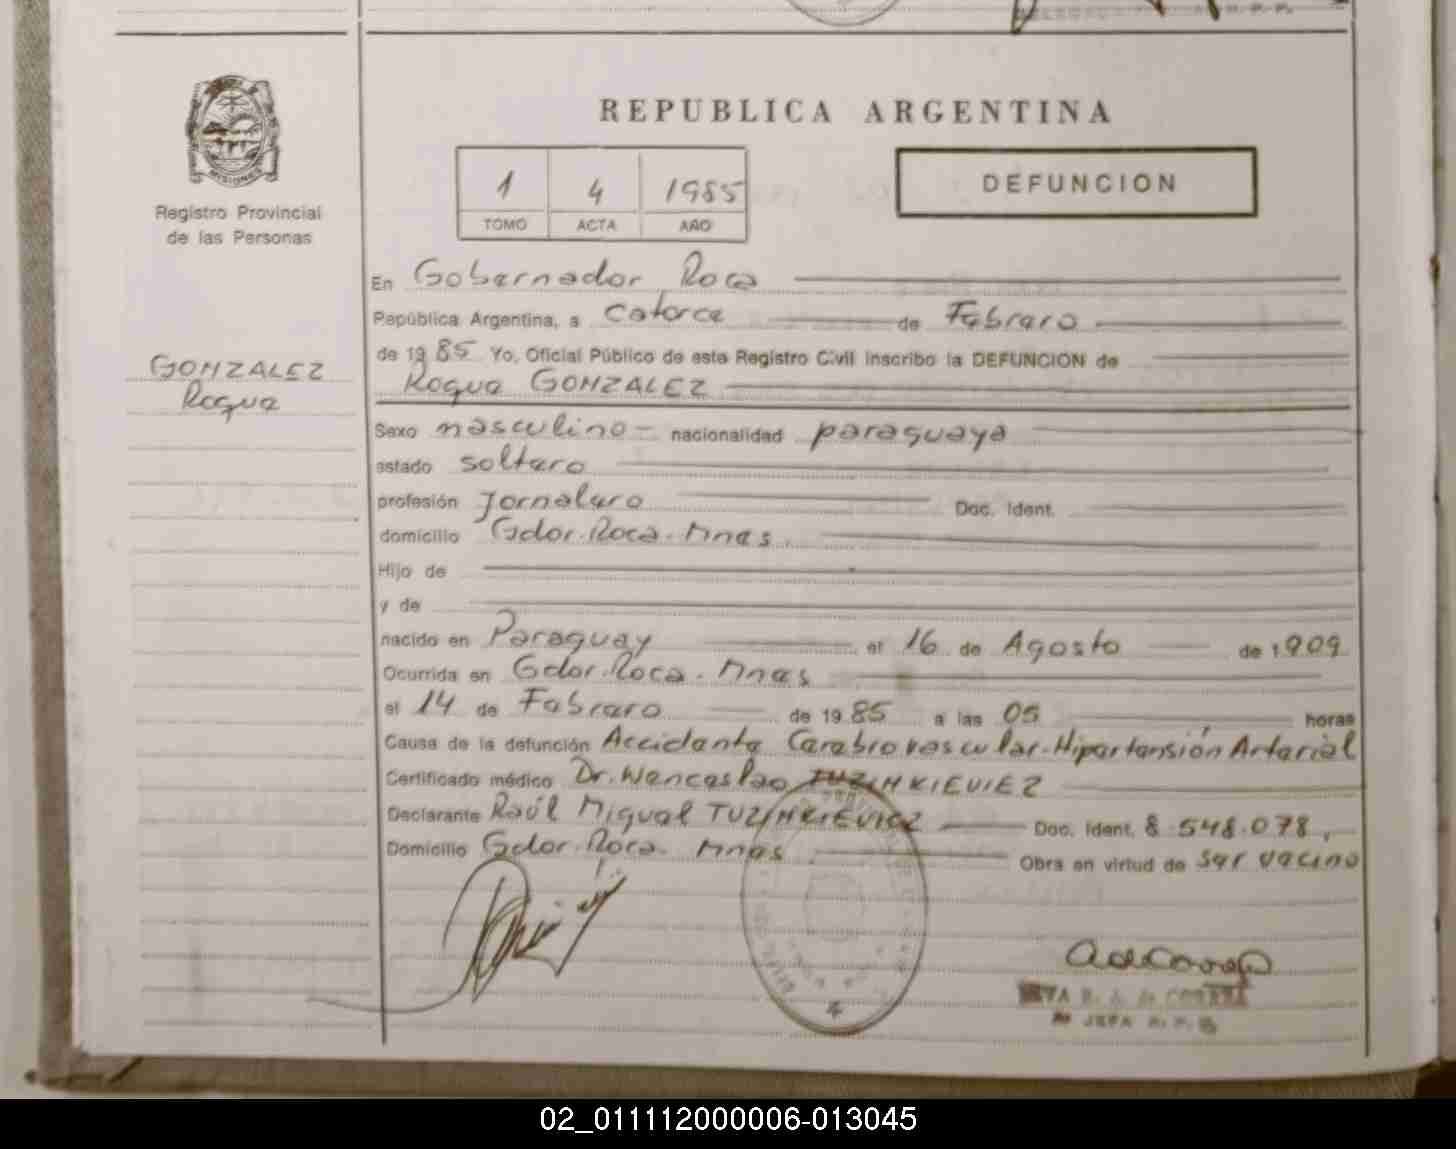 REPUBLICA ARGENTINA
MISIONES
Registro Provincial
de las Personas
1 4 1985
TOMO ACTA AÑO
DEFUNCION
GONZALEZ
Roque
En Gobernador Roca
República Argentina, a Catorce de Febrero
de 1985 Yo, Oficial Público de este Registro Civil inscribo la DEFUNCION de
Roque GONZALEZ
Sexo masculino - nacionalidad paraguaya
estado soltero
profesión Jornalero Doc. Ident.
domicilio Gdor. Roca. Mnes.
Hijo de
y de
nacido en Paraguay el 16 de Agosto de 1909
Ocurrida en Gdor. Roca. Mnes
el 14 de Febrero de 1985 a las 05 horas
Causa de la defunción Accidente Cerebrovascular-Hipertensión Arterial
Certificado médico Dr. Wenceslao TUZINKIEVIEZ
Declarante Raúl Miguel TUZINKIEVICZ Doc. Ident. 8.548.078,
Domicilio Gdor. Roca. Mnes Obra en virtud de ser vecino
JEFA R. P.
02_011112000006-013045